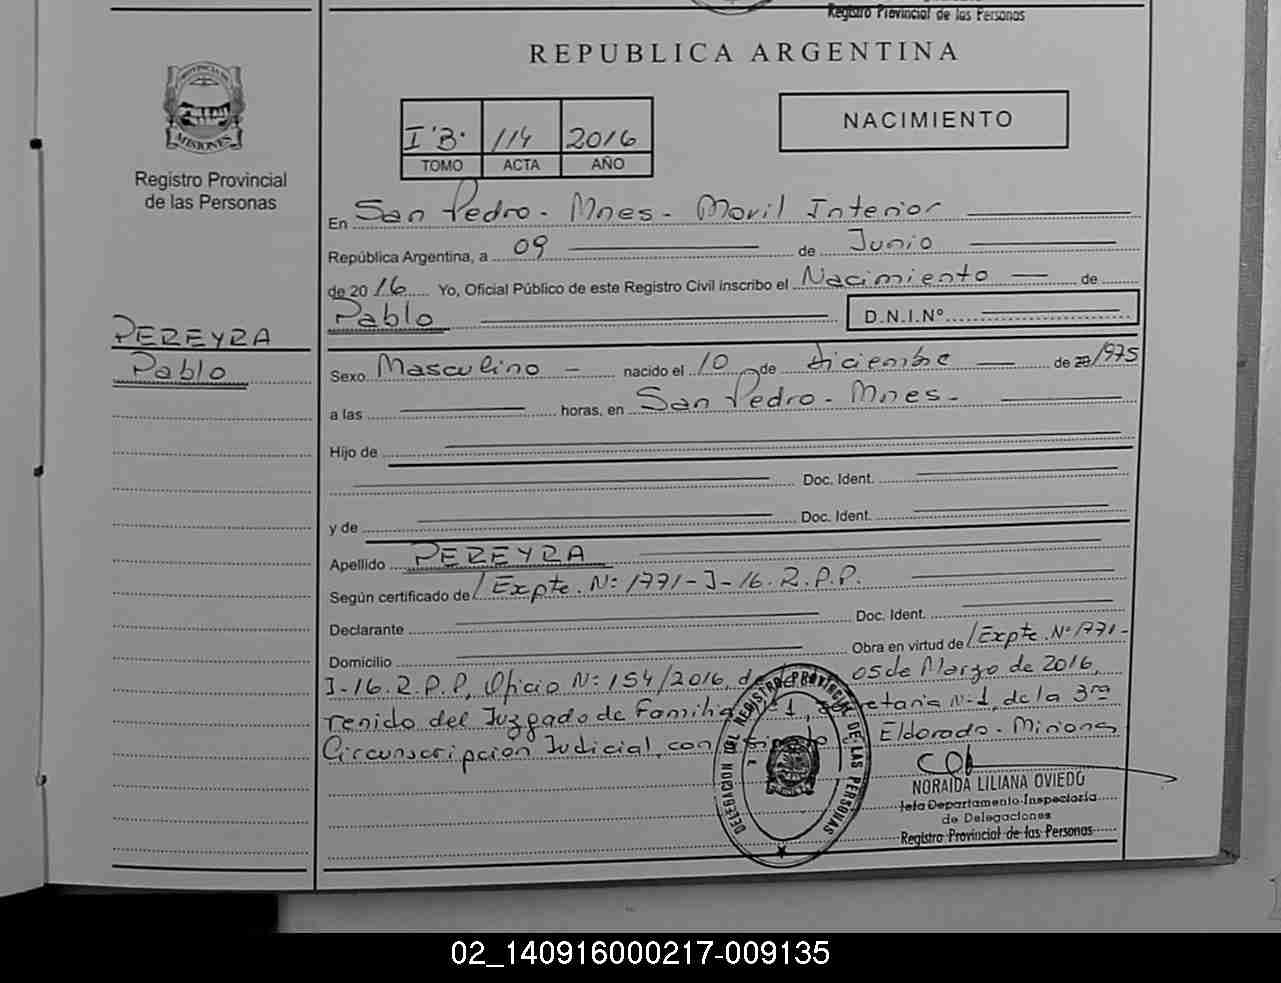 Registro Provincial de las Personas
REPUBLICA ARGENTINA
PROVINCIA DE
MISIONES
Registro Provincial
de las Personas
I "B" 114 2016
TOMO ACTA AÑO
NACIMIENTO
En San Pedro - Mnes - Movil Interior
República Argentina, a 09 de Junio
de 2016 Yo, Oficial Público de este Registro Civil inscribo el Nacimiento de
Pablo D.N.I.N°
PEREYRA
Pablo
Sexo Masculino - nacido el 10 de diciembre de 1975
a las horas, en San Pedro - Mnes -
Hijo de
Doc. Ident.
y de Doc. Ident.
Apellido PEREYRA
Según certificado de / Expte. N: 1771-J-16. R.P.P.
Declarante Doc. Ident.
Domicilio Obra en virtud de / Expte. N° 1771-
J-16. R.P.P, Oficio N: 154/2016, de 05 de Marzo de 2016,
venido del Juzgado de Familia 1, Secretaria N-1, de la 3ra
Circunscripcion Judicial, con Eldorado - Misiones
DELEGACION DEL REGISTRO PROVINCIAL DE LAS PERSONAS
NORAIDA LILIANA OVIEDO
Jefa Departamento Inspectoria
de Delegaciones
Registro Provincial de las Personas
02_140916000217-009135